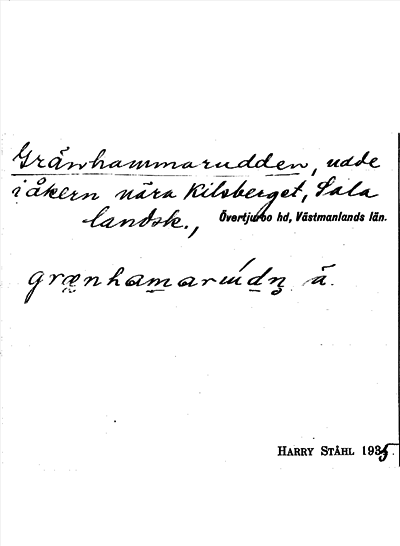 Gränhammarudden, udde
i åkern nära Kilsberget, Sala
landsk., Övertjurbo hd, Västmanlands län.
grænhamarúdn̥ ā.
HARRY STÅHL 1935.